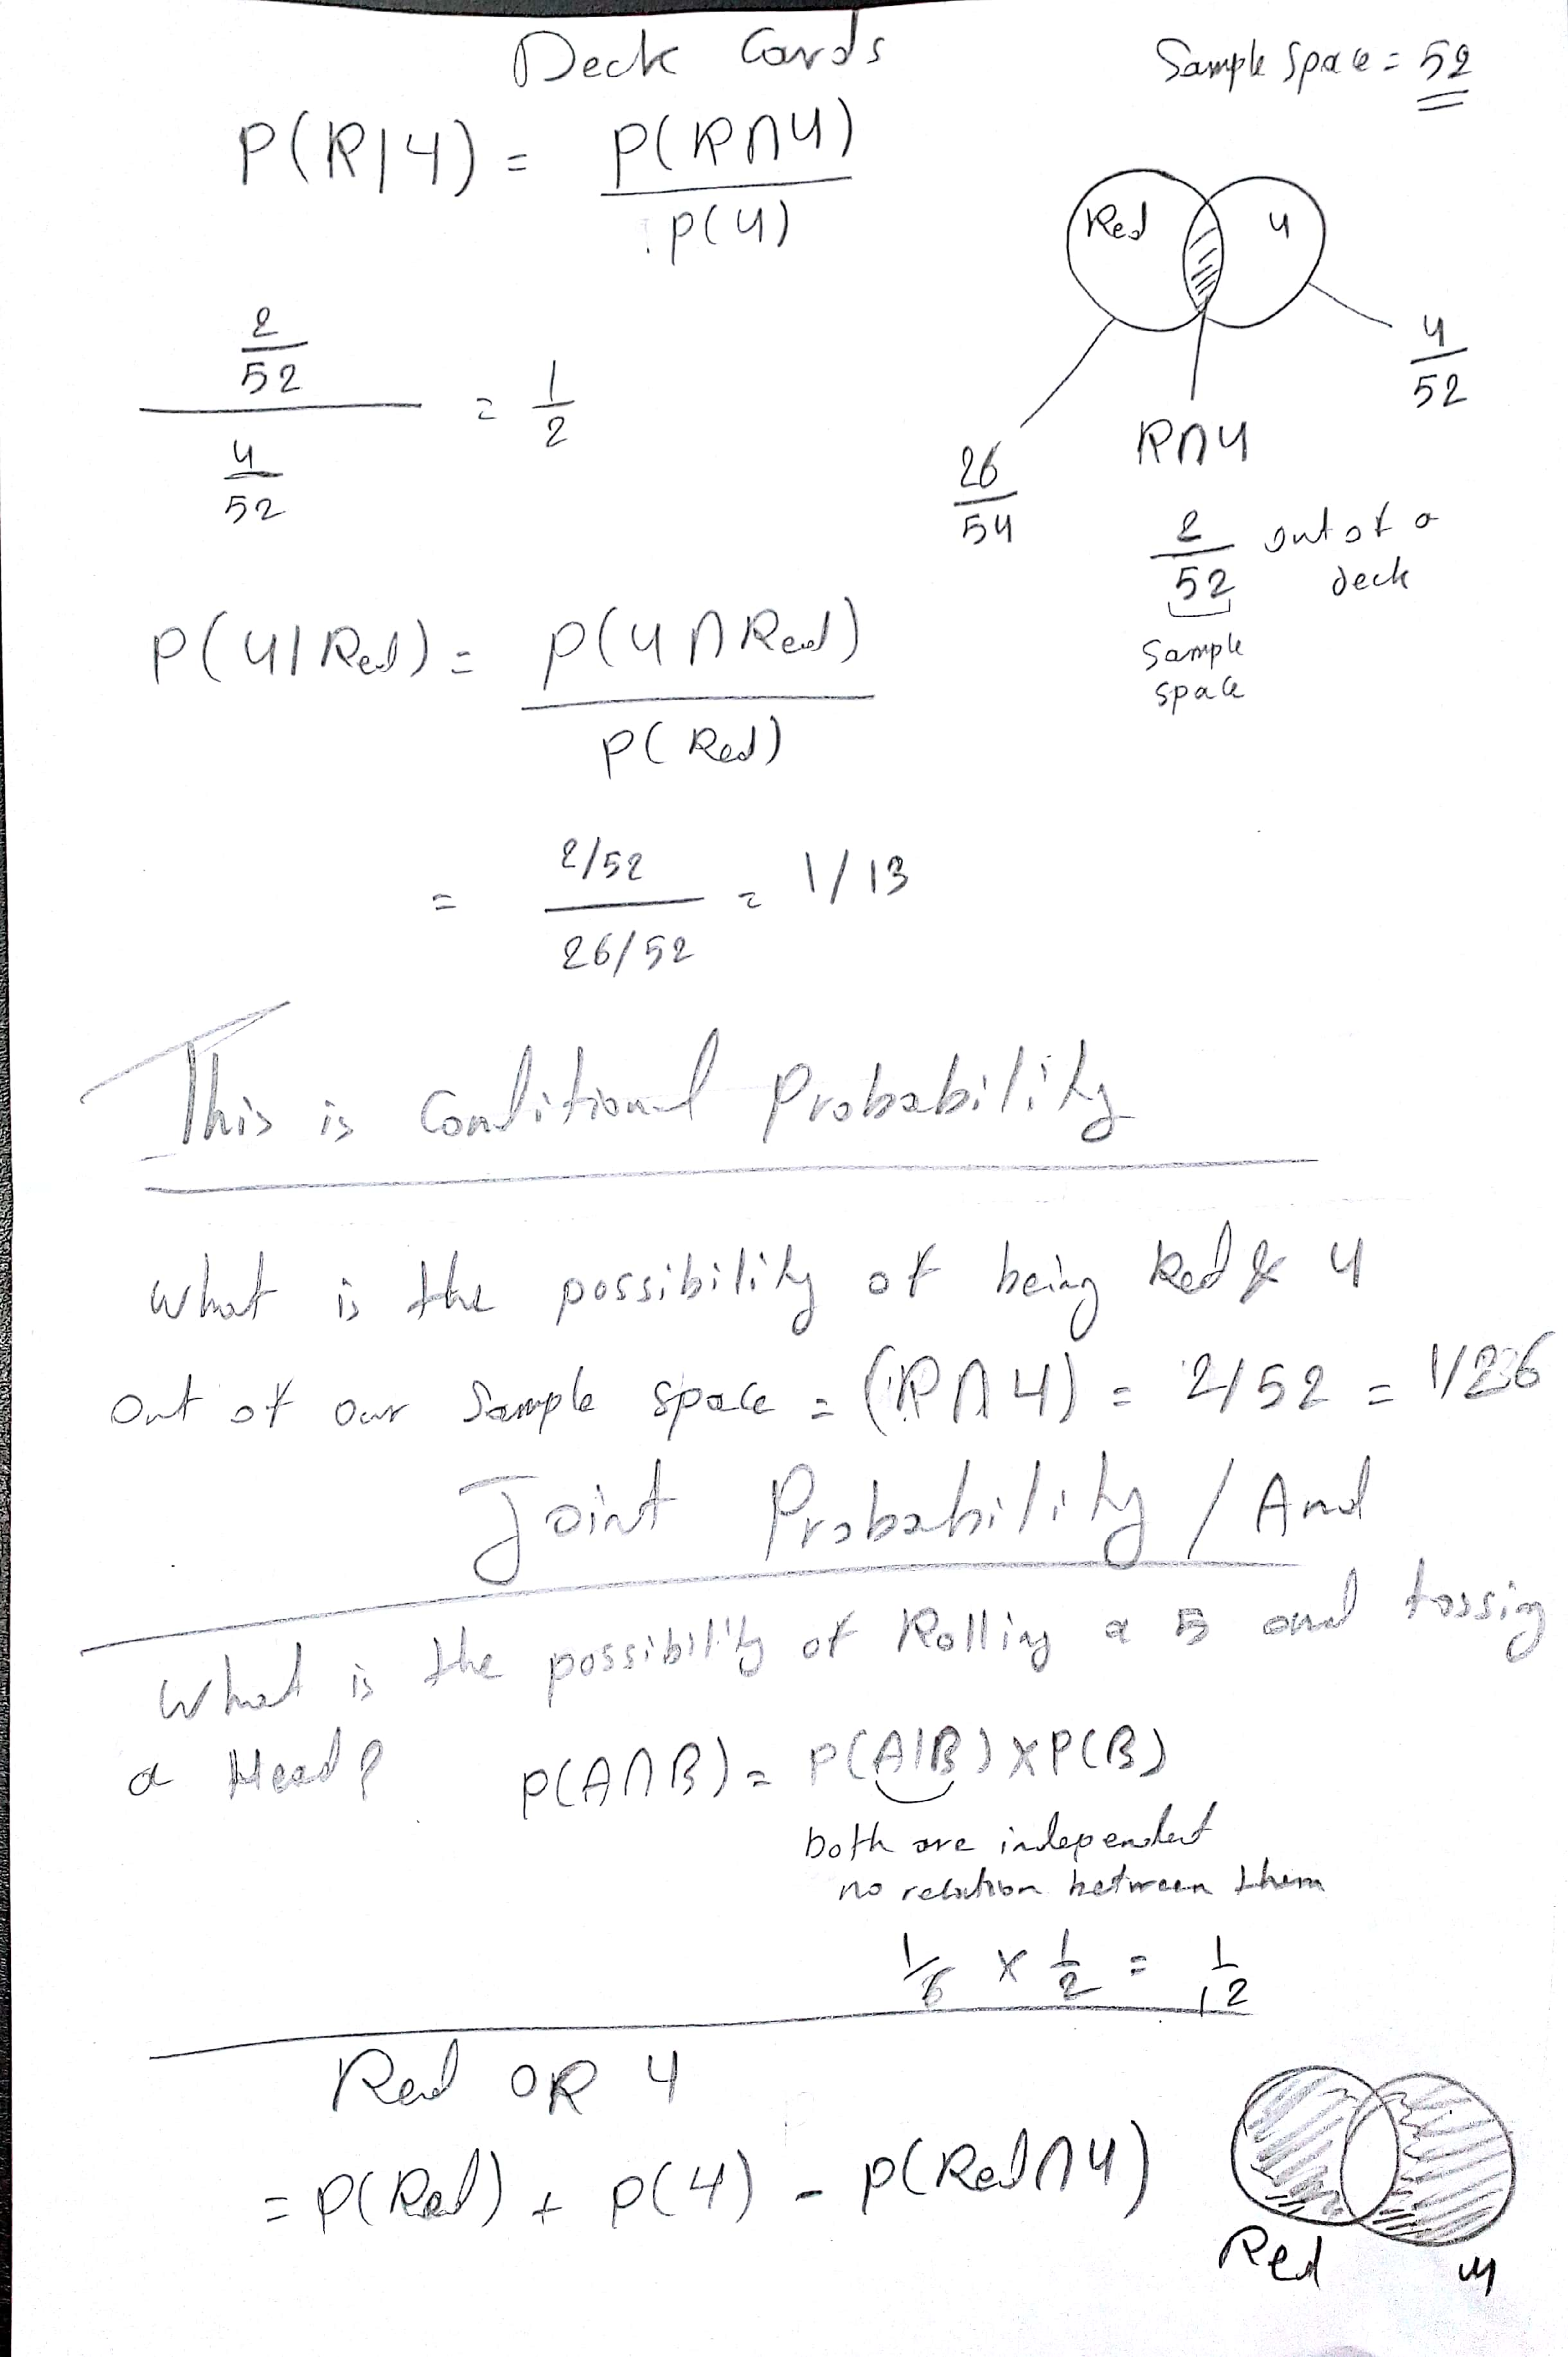 Deck Cards
Sample Space = 52
P(R|4) = P(R∩4)
P(4)
Red 4
2
52
4
52
= 1
2
4
52
26
54
R∩4
2
52
out of a
deck
Sample
space
P(4|Red) = P(4∩Red)
P(Red)
= 2/52 = 1/13
26/52
This is Conditional Probability
What is the possibility of being Red & 4
Out of our Sample space = (R∩4) = 2/52 =
Joint Probability / And
What is the possibility of Rolling a 5 and tossing
a Head? P(A∩B) = P(A|B) x P(B)
both are independent
no relation between them
1/6 x 1/2 = 1/12
Red OR 4
= P(Red) + P(4) - P(Red∩4)
Red 4